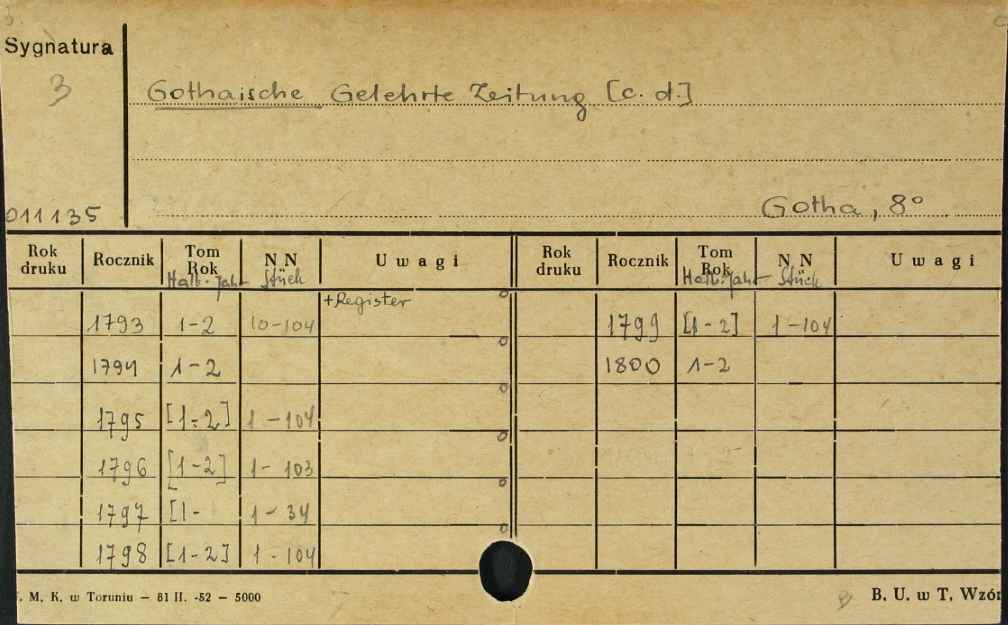 Sygnatura
3
Gothaische Gelehrte Zeitung [c. d.]
011135
Gotha, 8°
Rok druku Rocznik Tom Rok NN Uwagi Rok druku Rocznik Tom Rok NN Uwagi
Halb-Jahr Stück Halb-Jahr Stück
+Register
1793 1-2 10-104 1799 [1-2] 1-104
1794 1-2 1800 1-2
1795 [1-2] 1-104
1796 [1-2] 1-103
1797 [1- 1-34
1798 [1-2] 1-104
M. K. w Toruniu — 81 II. -52 — 5000
B. U. w T. Wzór